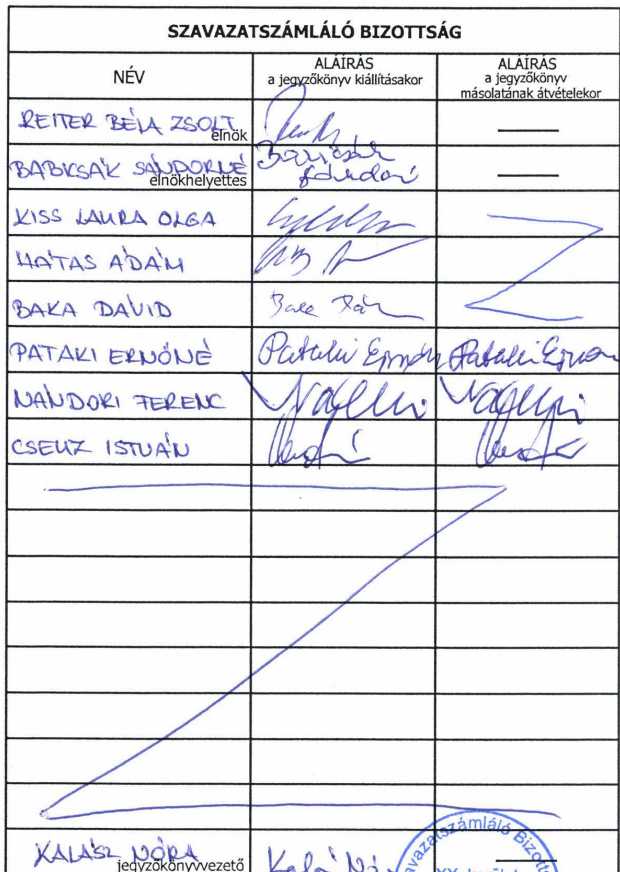 SZAVAZATSZÁMLÁLÓ BIZOTTSÁG
NÉV
ALÁÍRÁS
a jegyzőkönyv kiállításakor
ALÁÍRÁS
a jegyzőkönyv
másolatának átvételekor
REITER BÉLA ZSOLT
elnök
BABICSÁK SÁNDORNÉ
elnökhelyettes
KISS LAURA OLGA
HATAS ÁDÁM
BAKA DÁVID
PATAKI ERNŐNÉ Pataki Pataki
NÁNDORI FERENC
CSEUZ ISTVÁN
KALÁSZ NÓRA
jegyzőkönyvvezető